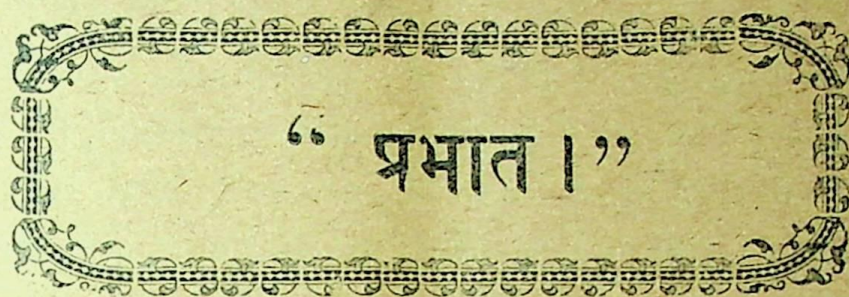 “ प्रभात ।”